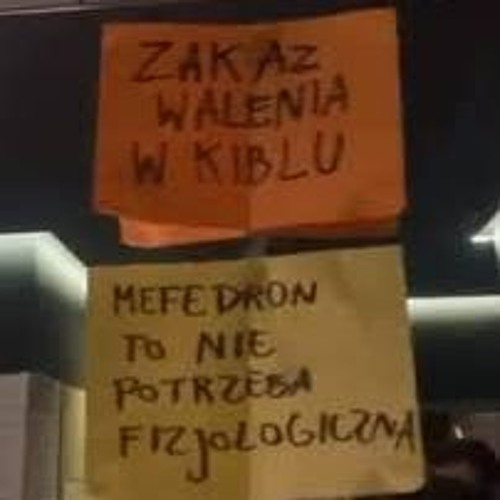 ZAKAZ
WALENIA
W KIBLU
MEFEDRON
TO NIE
POTRZEBA
FIZJOLOGICZNA